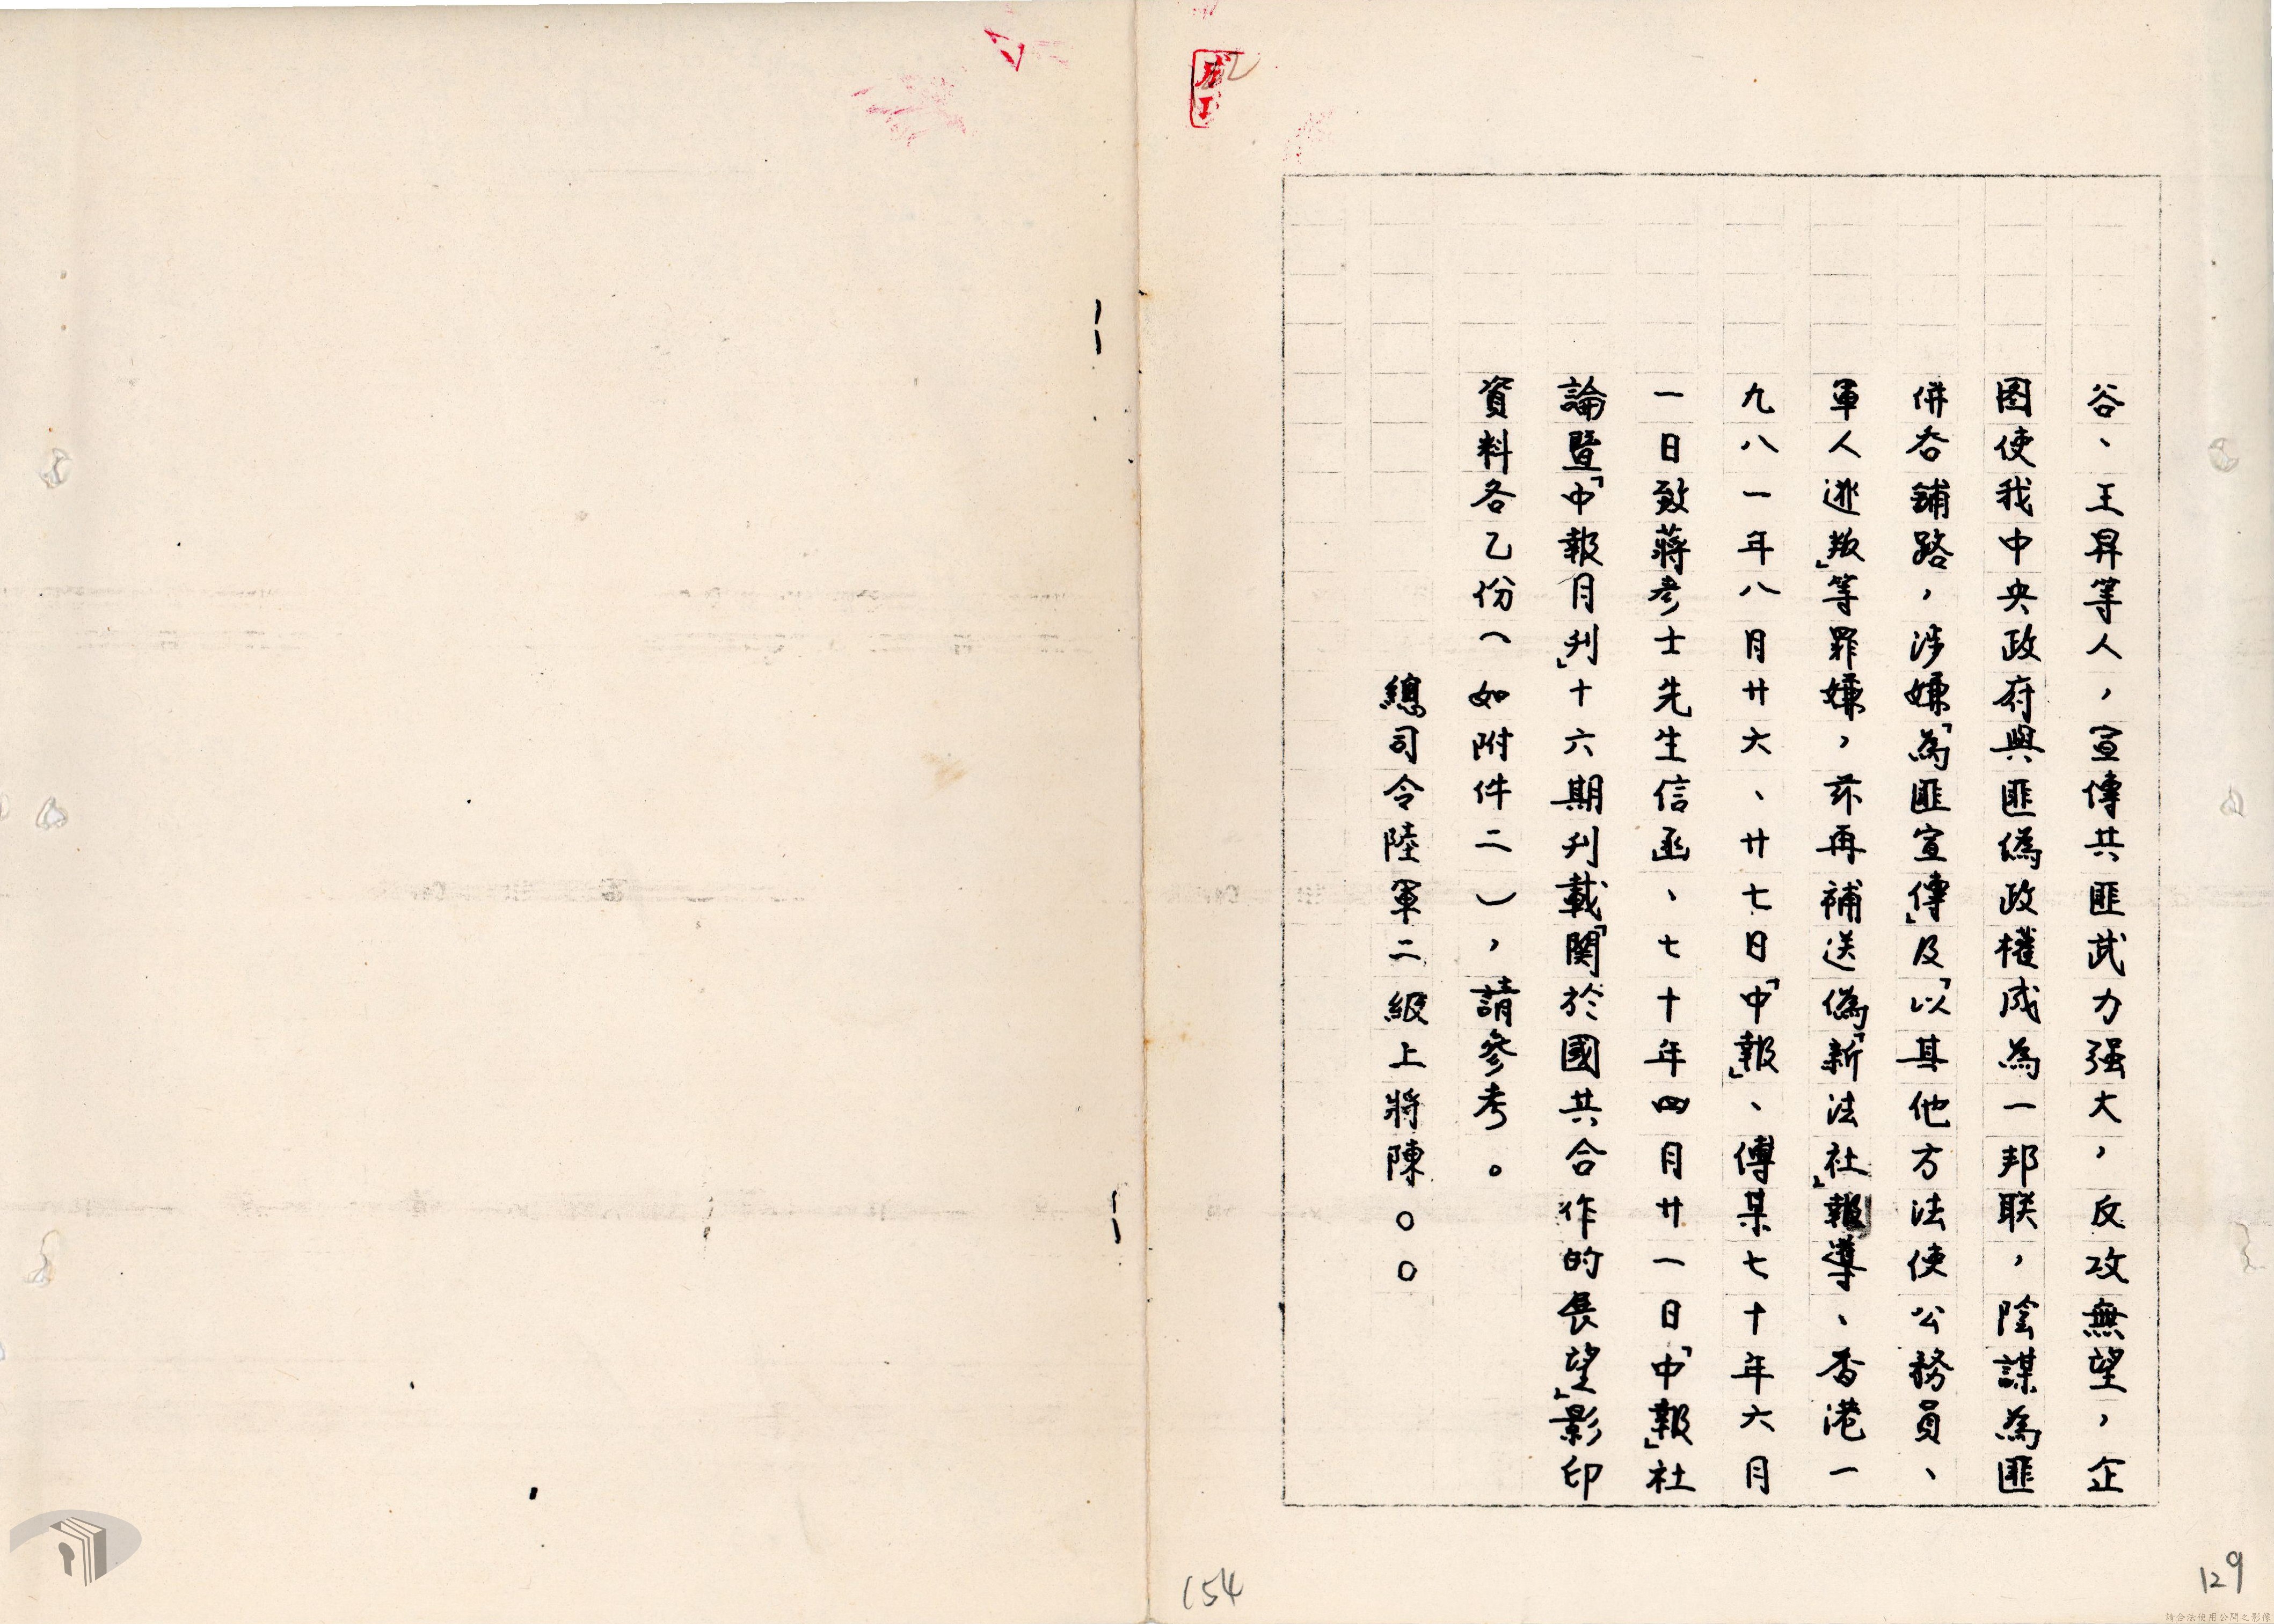 谷、王昇等人，宣傳共匪武力强大，反攻無望，企
图使我中央政府與匪偽政權成為一邦联，陰謀為匪
併吞鋪路，涉嫌「為匪宣傳」及「以其他方法使公務員、
軍人逃叛」等罪嫌，茲再補送偽「新法社」報導、香港一
九八一年八月廿六、廿七日「中報」、傅某七十年六月
一日致蔣彥士先生信函、七十年四月廿一日「中報」社
論暨「中報月刋」十六期刋載「関於國共合作的展望」影印
資料各乙份（如附件二），請參考。
總司令陸軍二級上將陳○○
154
129
請合法使用公開之影像